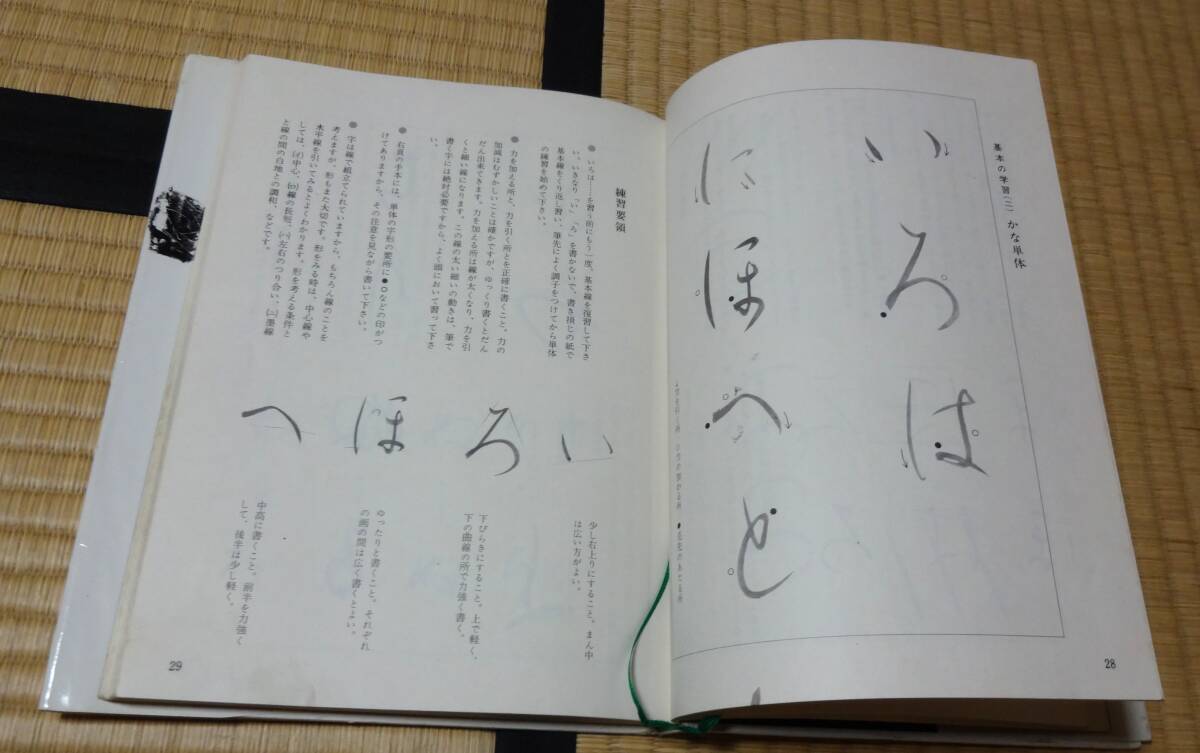 基本の学習(二) かな単体
いろは
にほへと
28
練習要領
● いろは――を習う前にもう一度、基本線を復習して下さ
い。いきなり「い」「ろ」を書かないで、書き損じの紙で
基本線をくり返し習い、筆先によく調子をつけてから単体
の練習を始めて下さい。
● 力を加える所と、力を引く所とを正確に書くこと。力の
加減はむずかしいことは確かですが、ゆっくり書くとだん
だん出来てきます。力を加える所は線が太くなり、力を引
くと細い線になります。この線の太い細いの動きは、筆で
書く字には絶対必要ですから、よく頭において習って下さ
い。
● 右頁の手本には、単体の字形の要所に●○などの印がつ
けてありますから、その注意を見ながら書いて下さい。
● 字は線で組立てられていますから、もちろん線のことを
考えますが、形もまた大切です。形をみる時は、中心線や
水平線を引いてみるとよくわかります。形を考える条件と
しては、(イ)中心、(ロ)線の長短、(ハ)左右のつり合い、(ニ)墨線
と線の間の白地との調和、などです。
い
少し右上りにすること。まん中
は広い方がよい。
ろ
下びらきにすること。上で軽く、
下の曲線の所で力強く書く。
ほ
ゆったりと書くこと。それぞれ
の画の間は広く書くとよい。
へ
中高に書くこと。前半を力強く
して、後半は少し軽く。
29